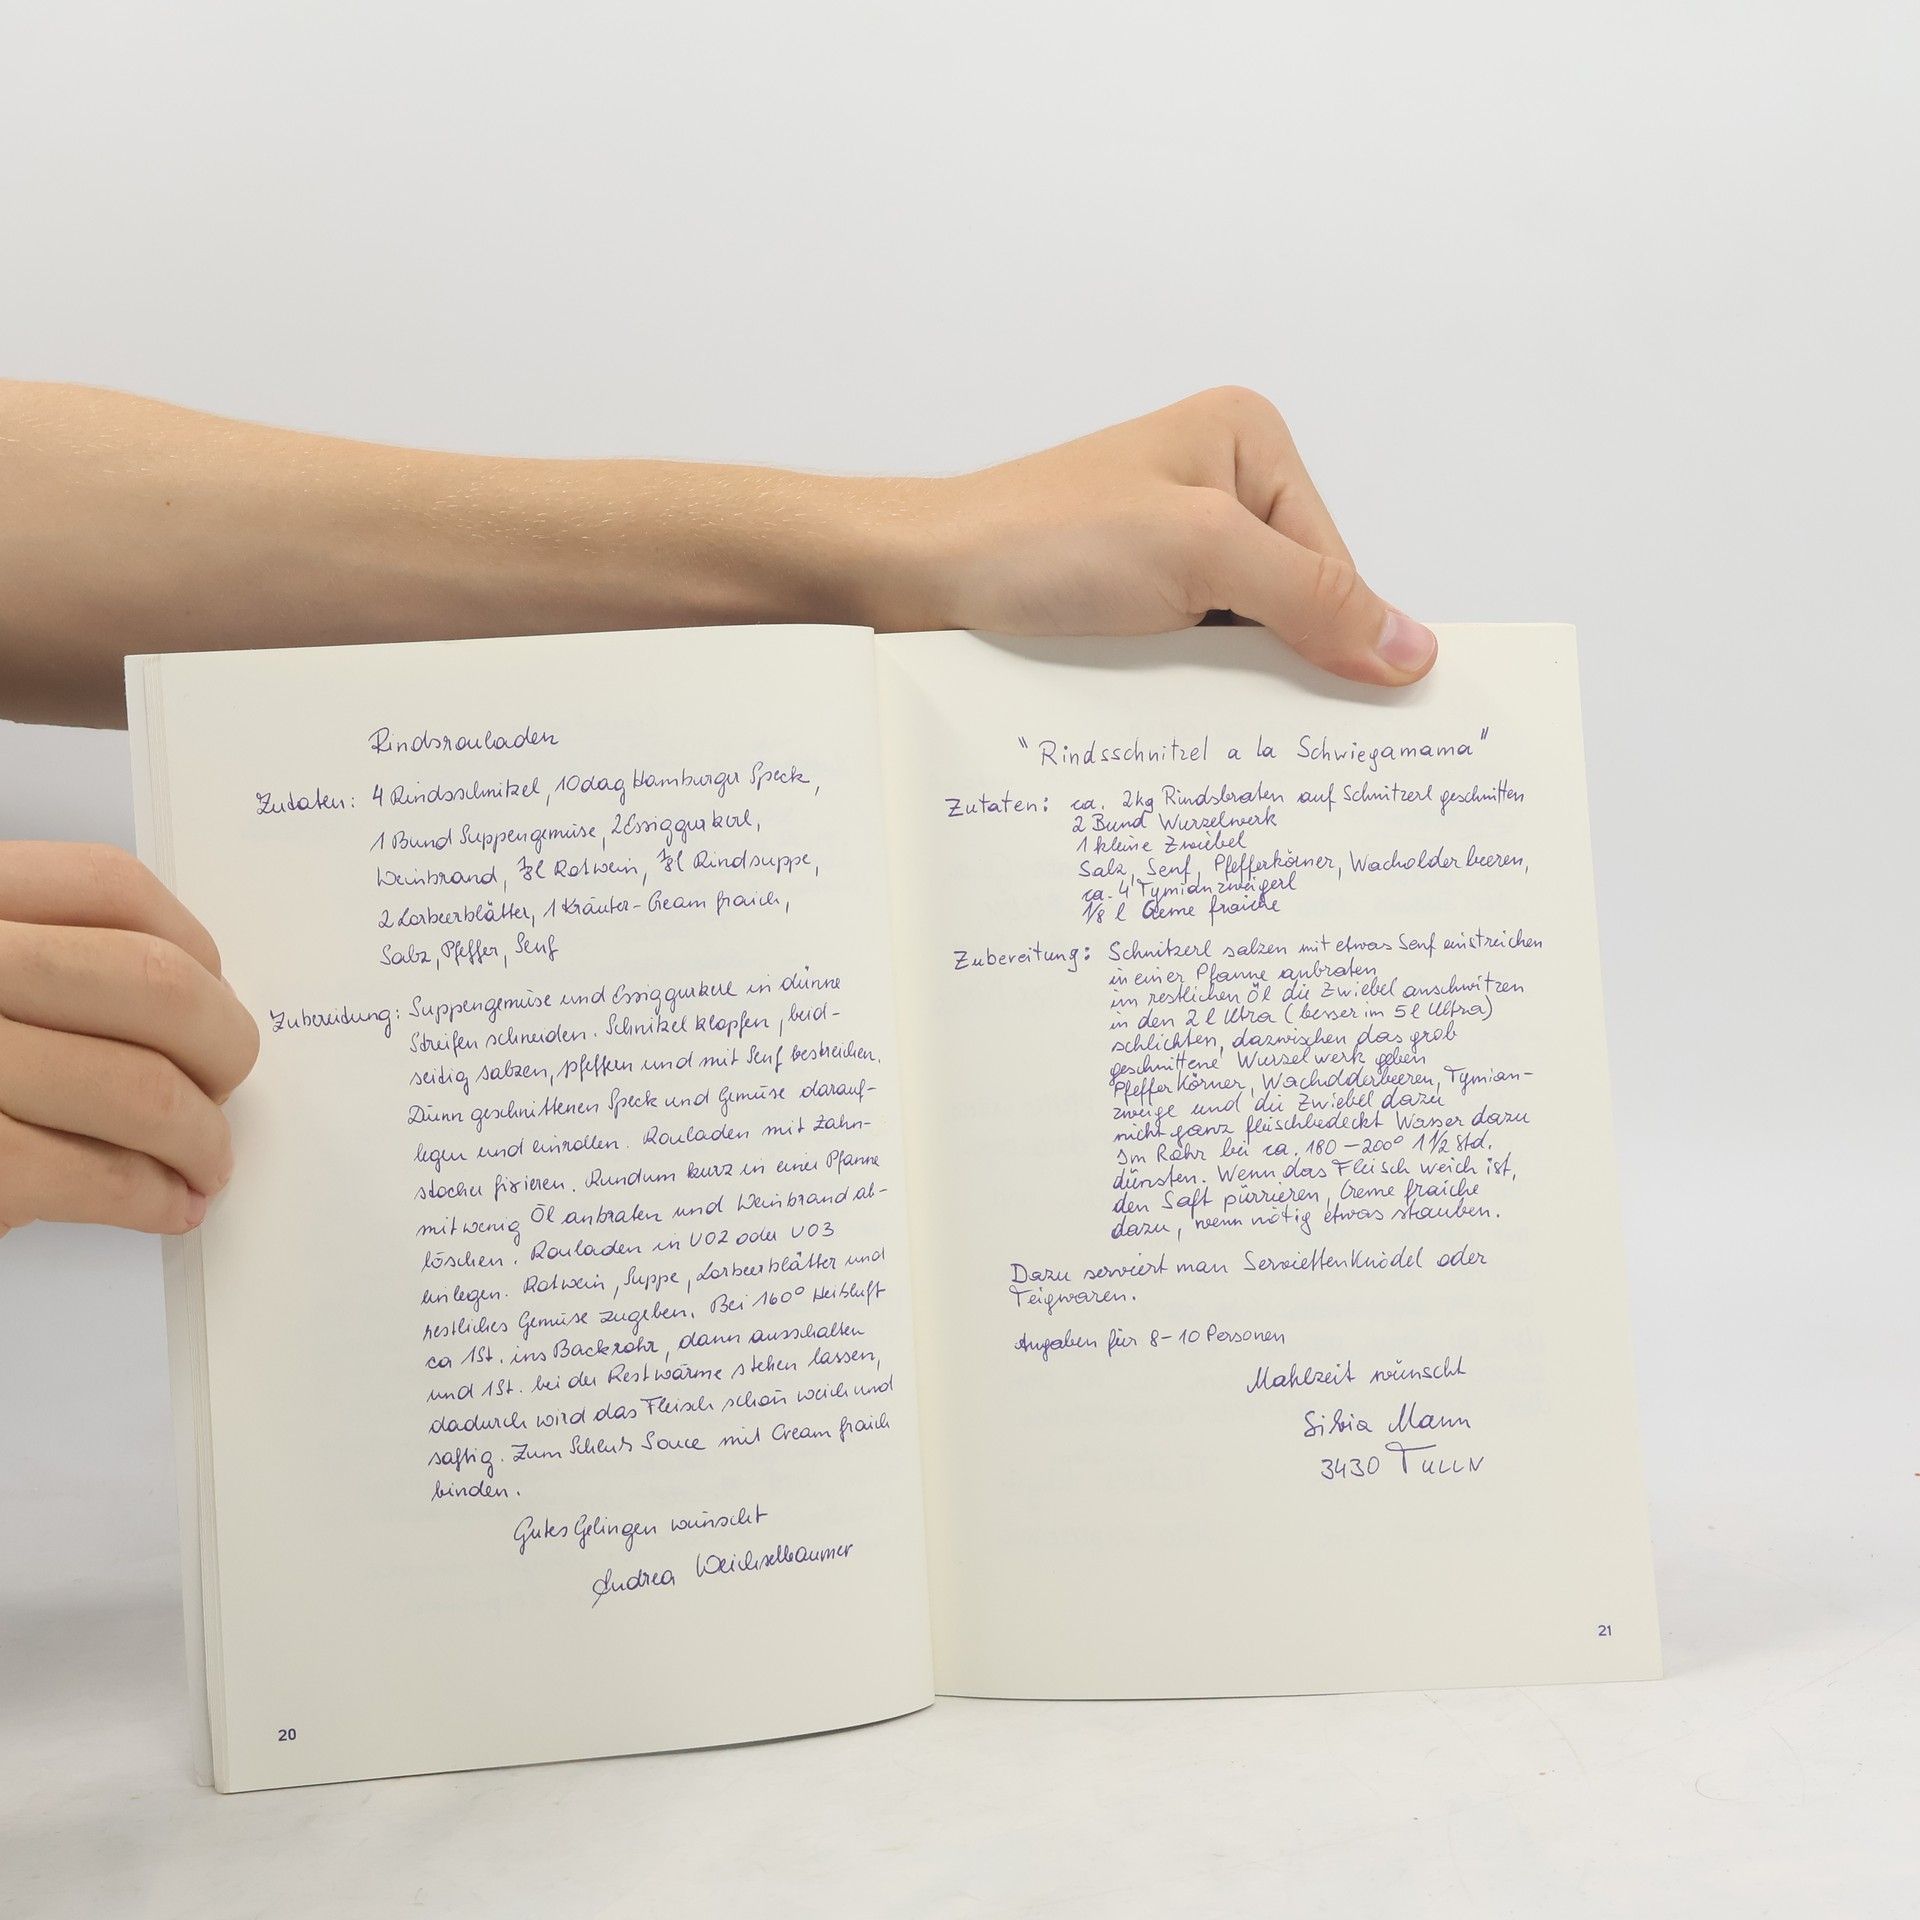 Rindsrouladen
Zutaten: 4 Rindsschnitzel, 10dag Hamburger Speck,
1 Bund Suppengemüse, 2 Essiggurkerl,
Weinbrand, ⅛l Rotwein, ⅛l Rindsuppe,
2 Lorbeerblätter, 1 Kräuter-Cream fraich,
Salz, Pfeffer, Senf
Zubereitung: Suppengemüse und Essiggurkerl in dünne
Streifen schneiden. Schnitzel klopfen, beid-
seitig salzen, pfeffern und mit Senf bestreichen.
Dünn geschnittenen Speck und Gemüse darauf-
legen und einrollen. Rouladen mit Zahn-
stocher fixieren. Rundum kurz in einer Pfanne
mit wenig Öl anbraten und Weinbrand ab-
löschen. Rouladen in U02 oder U03
einlegen. Rotwein, Suppe, Lorbeerblätter und
restliches Gemüse zugeben. Bei 160° Heißluft
ca 1St. ins Backrohr, dann ausschalten
und 1St. bei der Restwärme stehen lassen,
dadurch wird das Fleisch schön weich und
saftig. Zum Schluß Sauce mit Cream fraich
binden.
Gutes Gelingen wünscht
Andrea Weichselbaumer
20
"Rindsschnitzel a la Schwiegamama"
Zutaten: ca. 2kg Rindsbraten auf Schnitzerl geschnitten
2 Bund Wurzelwerk
1 kleine Zwiebel
Salz, Senf, Pfefferkörner, Wacholderbeeren,
ca. 4 Tymianzweigerl
1/8 l Creme fraiche
Zubereitung: Schnitzerl salzen mit etwas Senf einstreichen
in einer Pfanne anbraten
im restlichen Öl die Zwiebel anschwitzen
in den 2 l Ultra (besser im 5 l Ultra)
schlichten, dazwischen das grob
geschnittene Wurzelwerk geben
Pfefferkörner, Wacholderbeeren, Tymian-
zweige und die Zwiebel dazu
nicht ganz fleischbedeckt Wasser dazu
Im Rohr bei ca. 180 – 200° 1 1/2 Std.
dünsten. Wenn das Fleisch weich ist,
den Saft pürrieren, Creme fraiche
dazu, wenn nötig etwas stauben.
Dazu serviert man Serviettenknödel oder
Teigwaren.
Angaben für 8-10 Personen
Mahlzeit wünscht
Silvia Mann
3430 TULLN
21